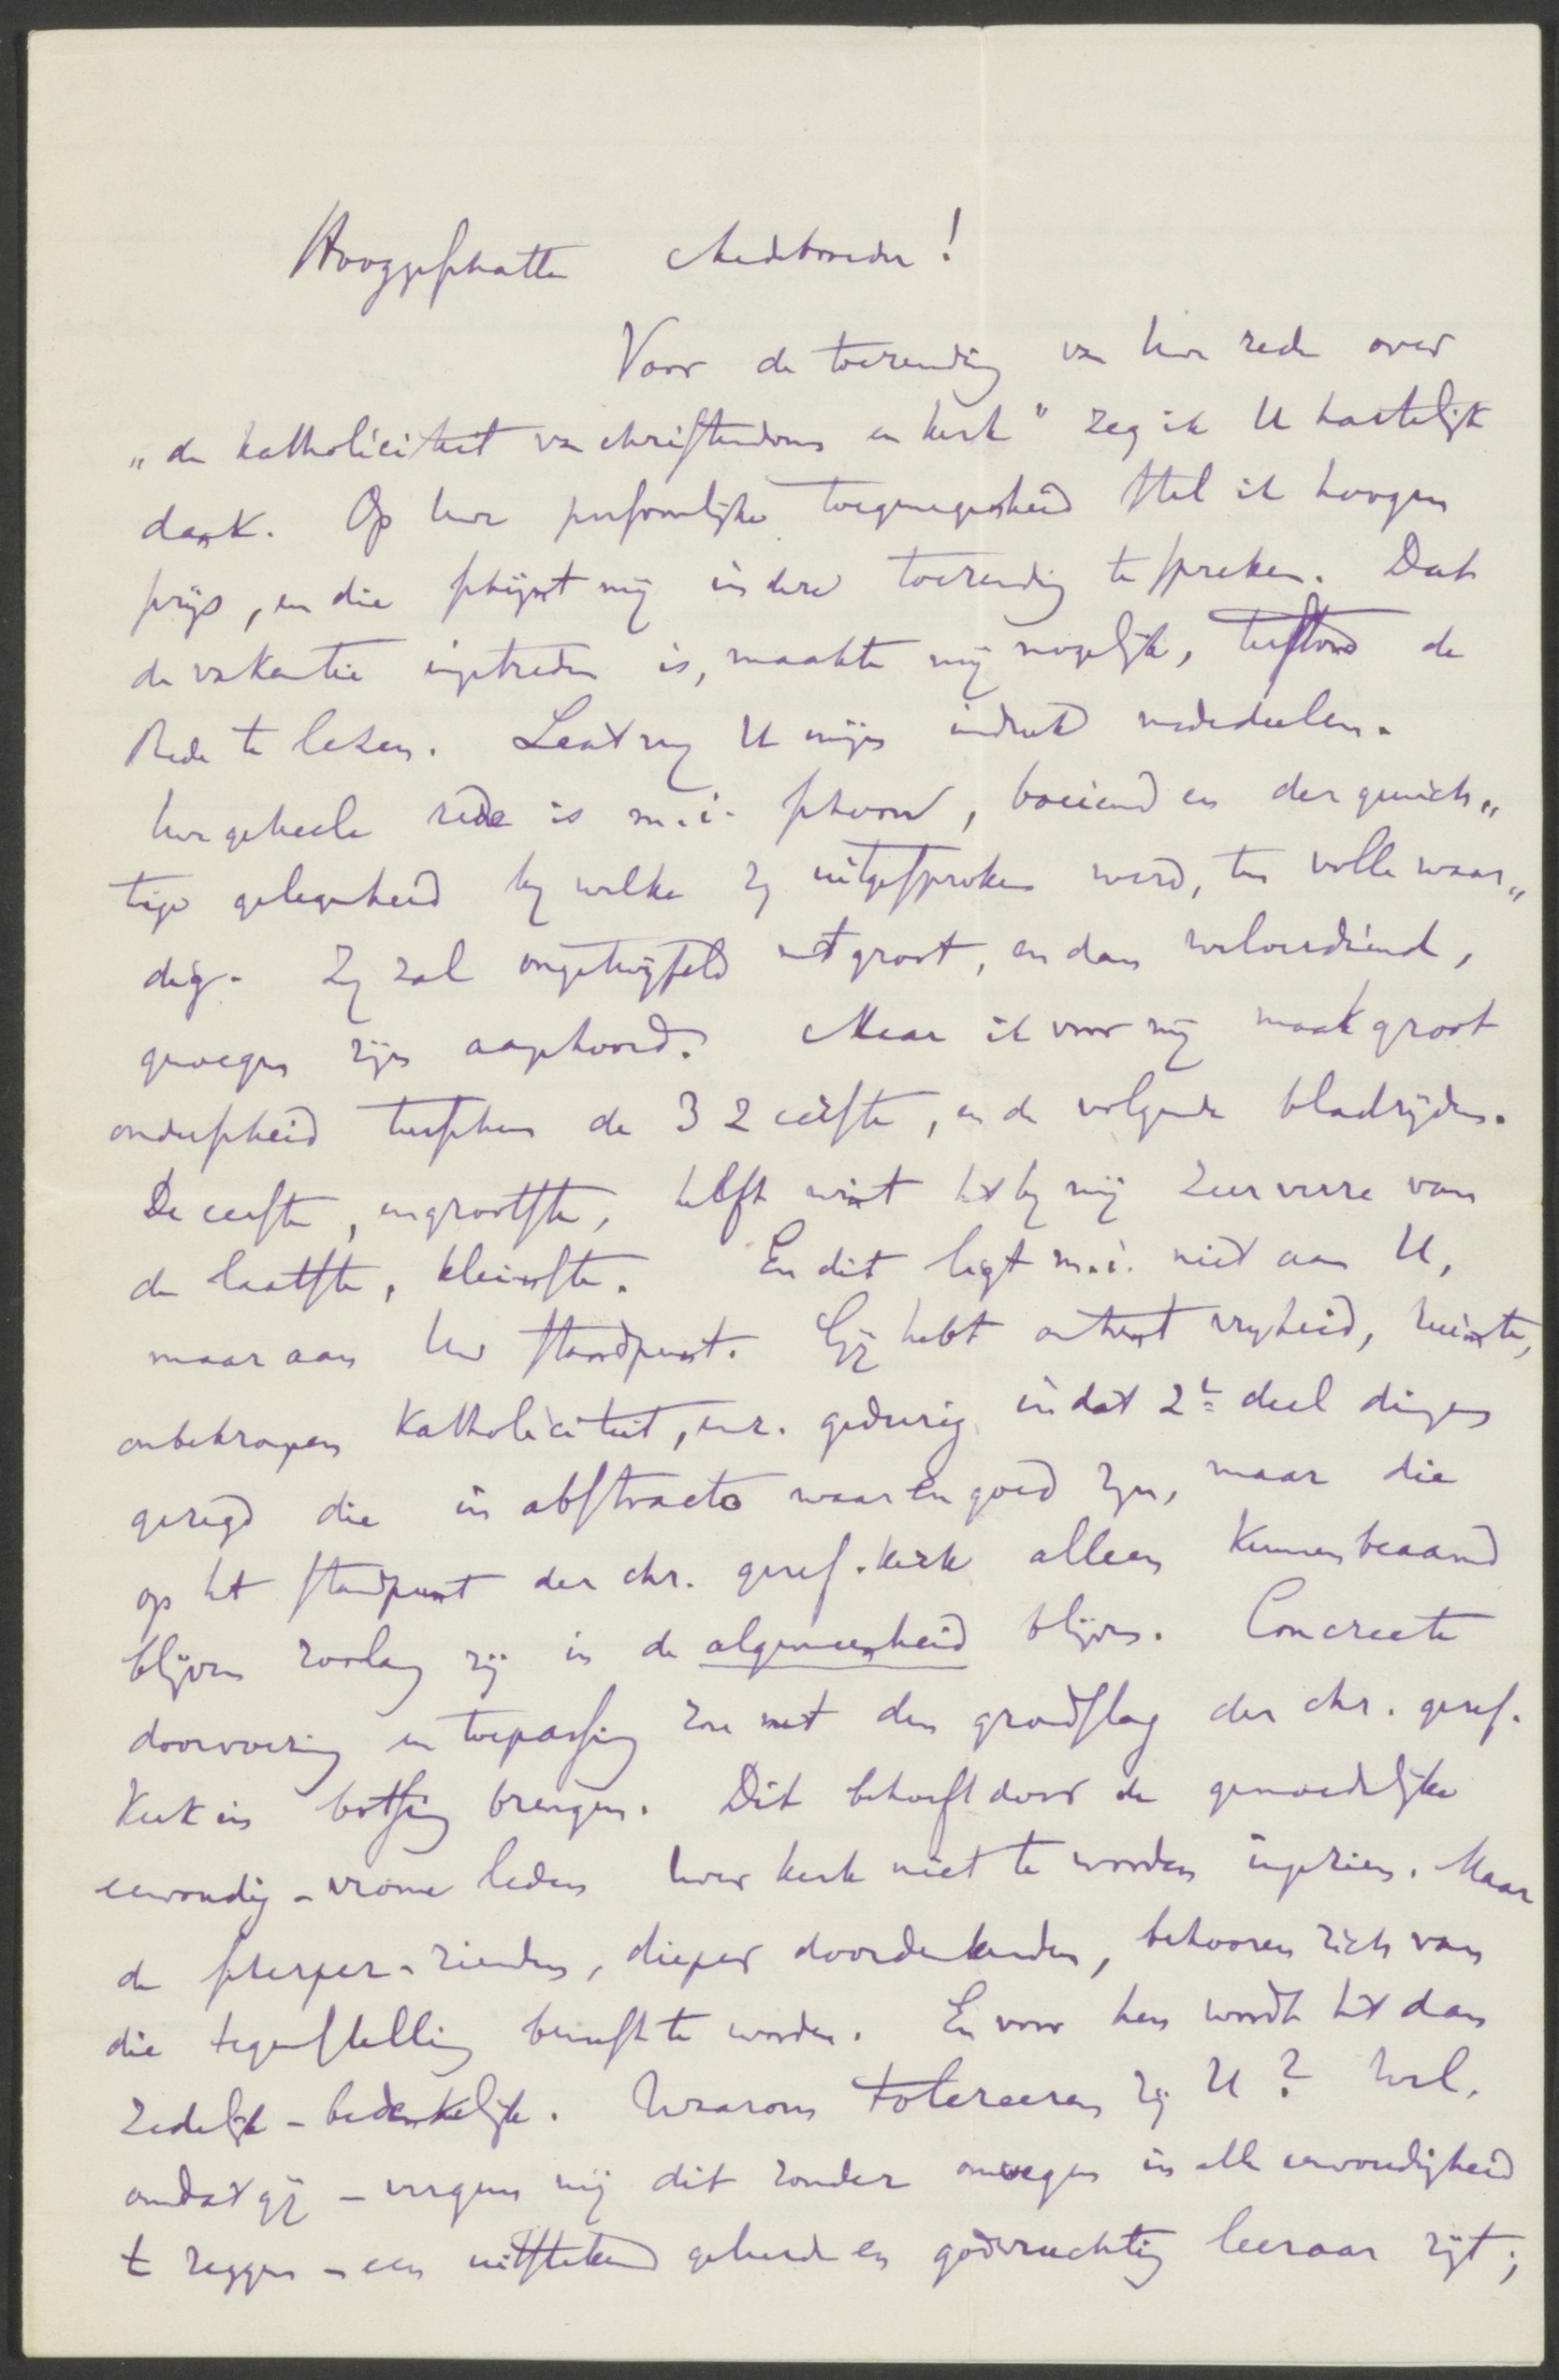 Hooggeschatte Medebroeder!
Voor de toezending van Uwe rede over
„de katholiciteit van christendom en kerk" zeg ik U hartelijk
dank. Op Uwe persoonlijke toegenegenheid stel ik hoogen
prijs, en die schijnt mij in deze toezending te spreken. Dat
de vakantie ingetreden is, maakte mij mogelijk, terstond de
Rede te lezen. Laat mij U mijn indruk mededeelen.
Uw geheele rede is m.i. schoon, boeiend en der gewich„
tige gelegenheid bij welke zij uitgesproken werd, ten volle waar„
dig. Zij zal ongetwijfeld met groot, en dan welverdiend,
genoegen zijn aangehoord. Maar ik voor mij maak groot
onderscheid tusschen de 32 eerste, en de volgende bladzijden.
De eerste, en grootste, helft wint het bij mij zeer verre van
de laatste, kleinste. En dit ligt m.i. niet aan U,
maar aan Uw standpunt. Gij hebt omtrent vrijheid, ruimte,
onbekrompen katholiciteit, enz. gedurig in dat 2e deel dingen
gezegd die in abstracto waar en goed zijn, maar die
op het standpunt der chr. geref. kerk alleen kunnen beaamd
blijven zoolang zij in de algemeenheid blijven. Concreete
doorvoering en toepassing zou met den grondslag der chr. geref.
Kerk in botsing brengen. Dit behoeft door de gemoedelijke
eenvoudig-vrome leden Uwer kerk niet te worden ingezien. Maar
de scherper-zienden, dieper doordenkenden, behooren zich van
die tegenstelling bewust te worden. En voor hen wordt het dan
zedelijk-bedenkelijk. Waarom tolereeren zij U? Wel,
omdat gij – vergun mij dit zonder omwegen in alle eenvoudigheid
te zeggen – een uitstekend geleerd en godvruchtig leeraar zijt;